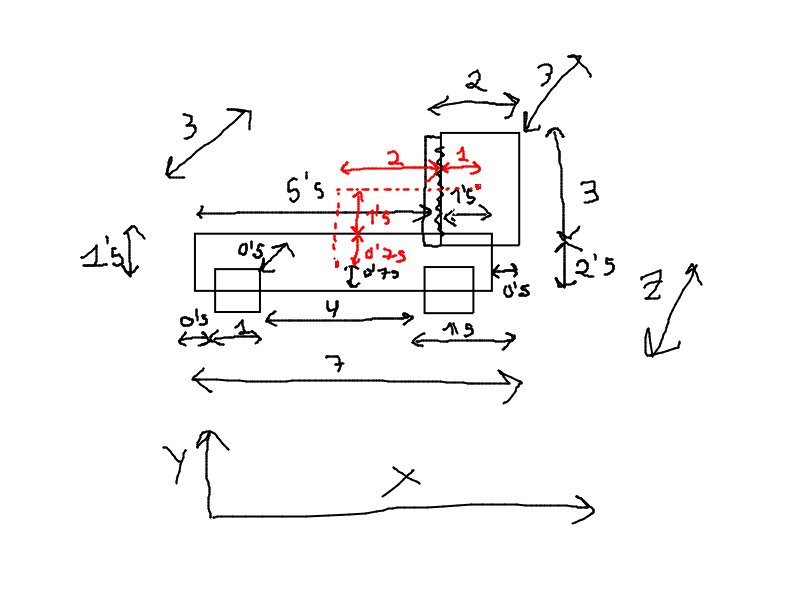 2
3
3
2
1
3
5'5
1'5
1'5
1'5
0'5
0'75
0'75
2'5
0'5
Z
0'5
1
4
1'5
7
Y
X